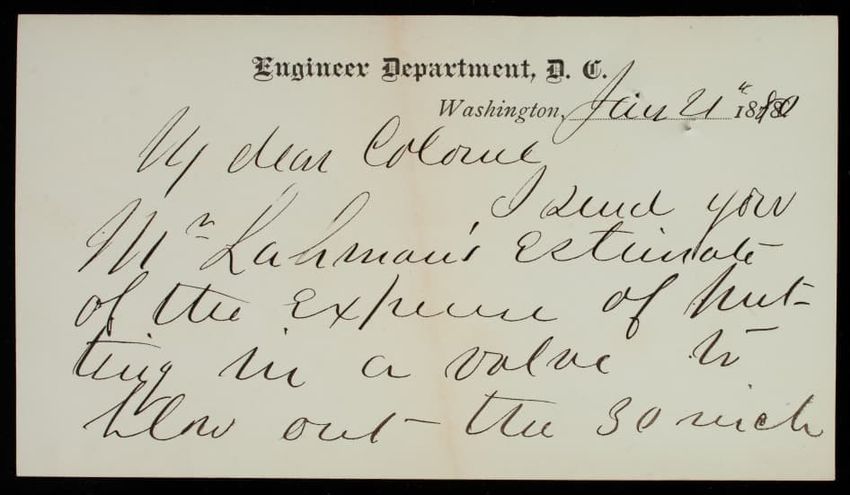 Engineer Department, D. C.
Washington, Jany 21st 1880
My dear Colonel
I send you
Mr Lahman's Estimate
of the Expense of put-
ting in a valve to
blow out the 30 inch